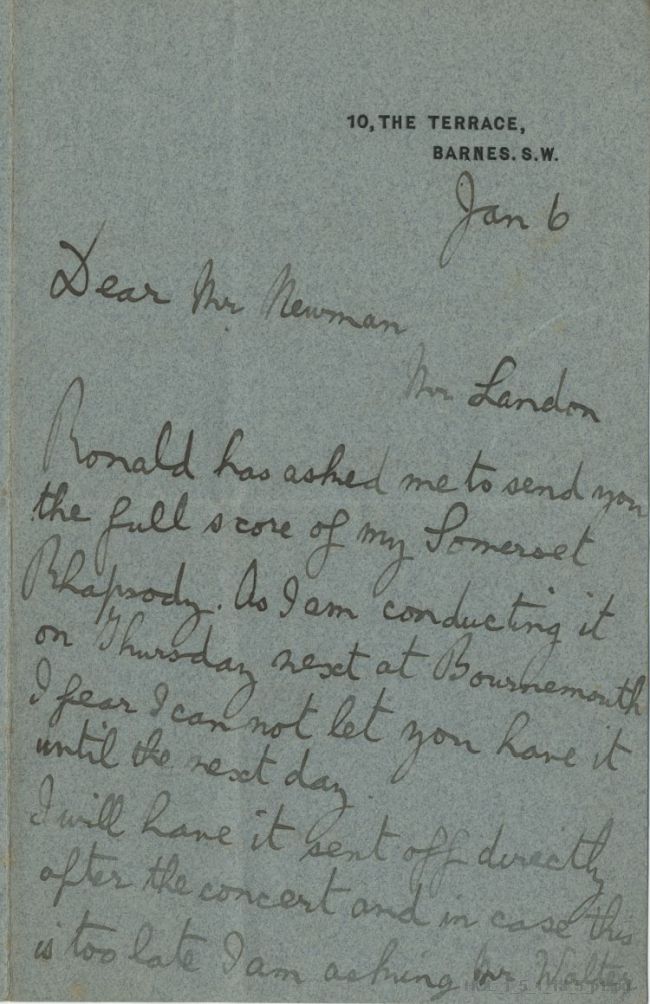 10, THE TERRACE,
BARNES. S.W.
Jan 6
Dear Mr Newman
Mr Landon
Ronald has asked me to send you
the full score of my Somerset
Rhapsody. As I am conducting it
on Thursday next at Bournemouth
I fear I can not let you have it
until the next day.
I will have it sent off directly
after the concert and in case this
is too late I am asking Mr Walter